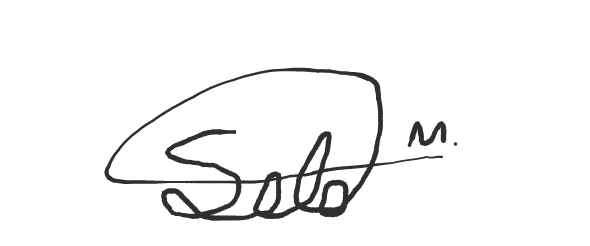 Solo M.